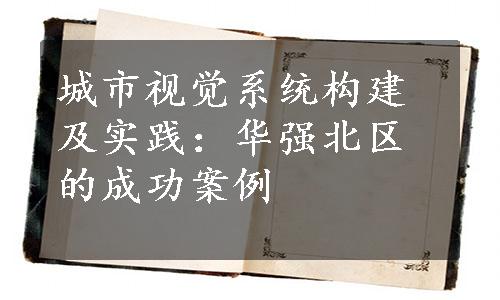 城市视觉系统构建
及实践：华强北区
的成功案例